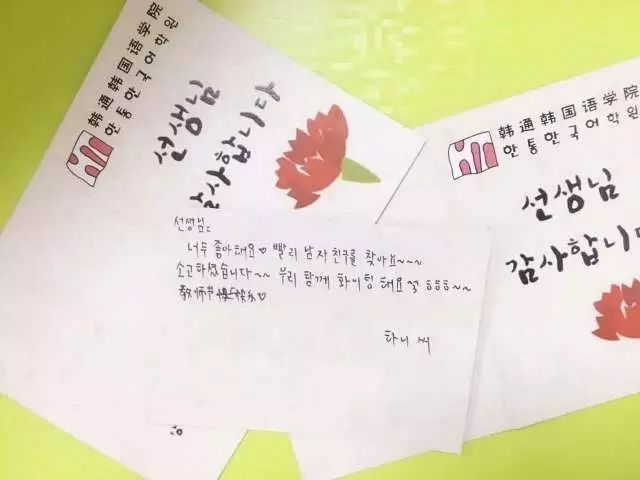 韩通韩国语学院
한통한국어학원
선생님
감사합니다
선생님:
너무 좋아해요♡ 빨리 남자친구를 찾아요~~~
소고하셨습니다~~ 우리 함께 화이팅 해요
教师节快乐♡
타니 씨
韩通韩国语学院
한통한국어학원
선생님
감사합니다